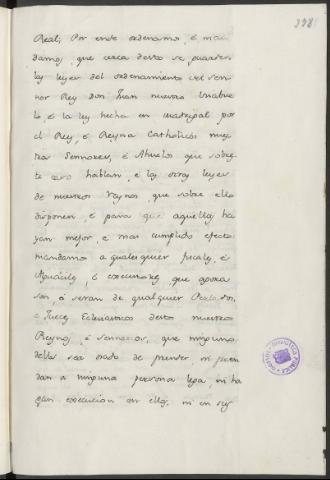 398
Real; Por ende ordenamos, é man
damos, que cerca desto se guarden
las leyes del ordenamiento del Sen
nor Rey Don Juan nuestro Visabue
lo, é la ley hecha en Madrigal por
el Rey, é Reyna Catholicos nues
tros Sennores, é Abuelos que sobre
te caso hablan, é las otras leyes
de nuestros Reynos, que sobre ello
disponen, é para que aquellas ha
yan mejor, é mas cumplido efecto
mandamos a qualesquier fiscales, é
Alguaciles, é executores, que agora
son, ó seran de qualquier Perlados,
e Jueces Eclesiasticos destos nuestros
Reynos, é sennorios, que ninguno
dellos sea osado de prender, ni pren
dan a ninguna persona lega, ni ha
gan execucion en ellos, ni en sus